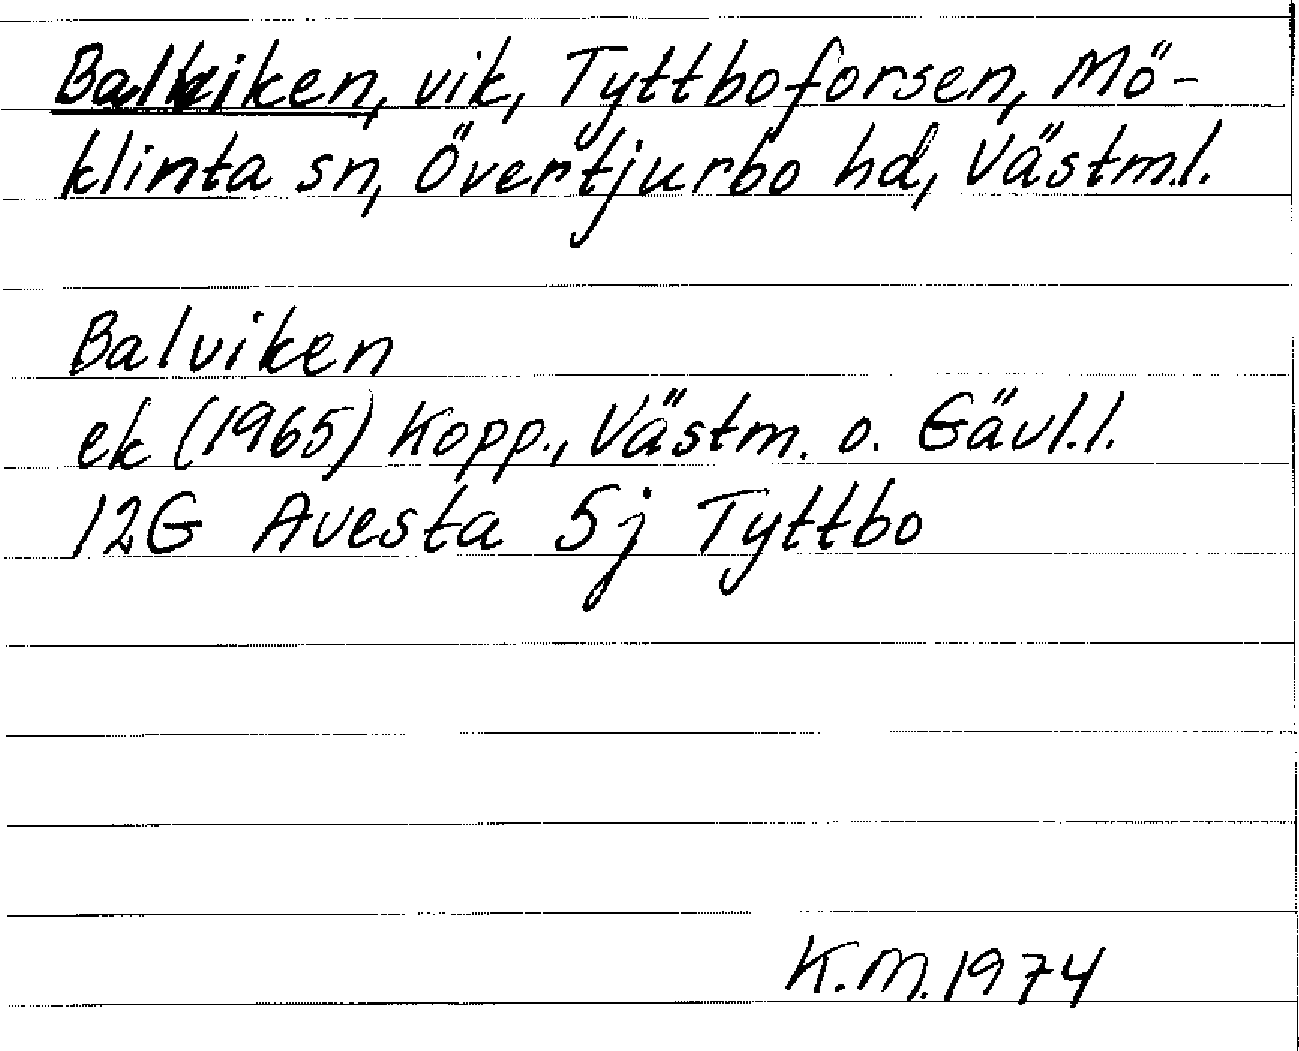 Balviken, vik, Tyttboforsen, Mö-
klinta sn, Övertjurbo hd, Västm.l.
Balviken
ek (1965) Kopp., Västm. o. Gävl.l.
12G Avesta 5j Tyttbo
K.M. 1974